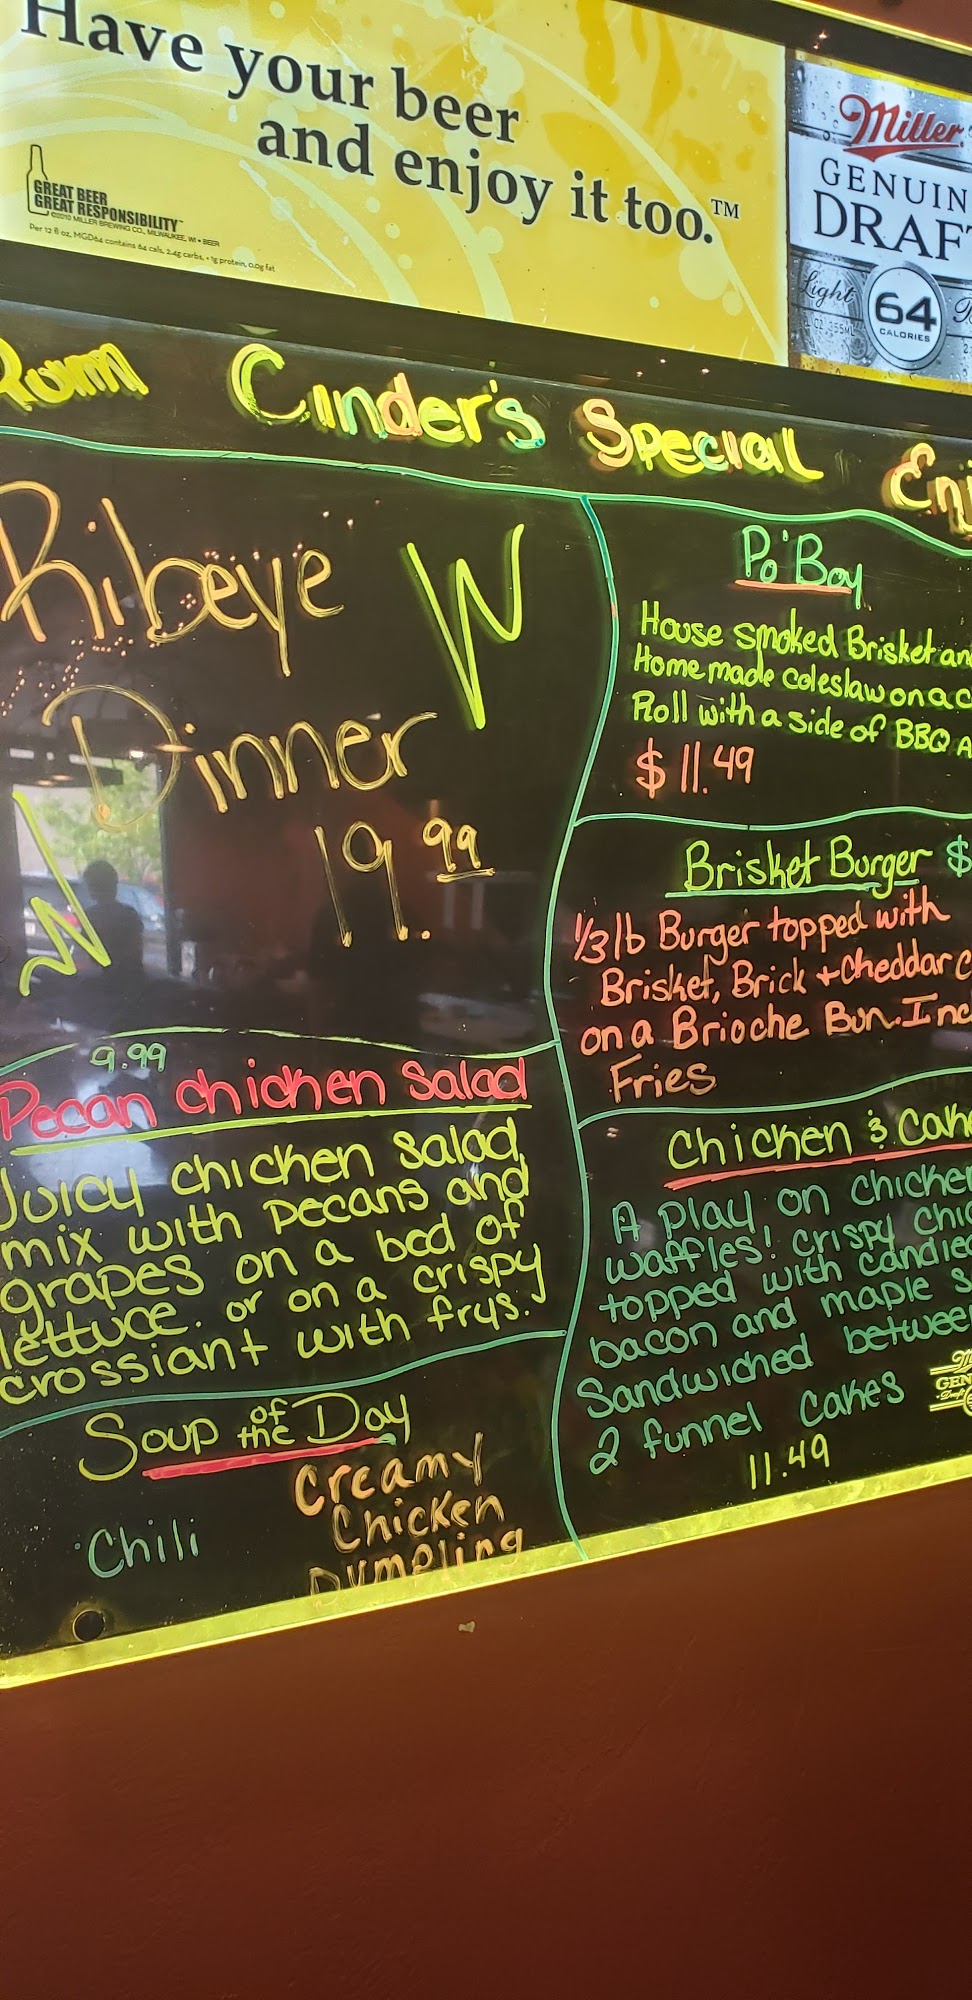 Have your beer
and enjoy it too.™
GREAT BEER
GREAT RESPONSIBILITY™
©2010 MILLER BREWING CO., MILWAUKEE, WI • BEER
Per 12 fl oz, MGD64 contains 64 cals, 2.4g carbs, <1g protein, 0.0g fat
Miller
GENUIN
DRAFT
Light
64
CALORIES
Cinder's Special Enj
Ribeye
Dinner
19.99
Po'Boy
House smoked Brisket an
Homemade coleslaw on a c
Roll with a side of BBQ A
$11.49
Brisket Burger $
1/3 lb Burger topped with
Brisket, Brick + Cheddar c
on a Brioche Bun. Inc
Fries
9.99
Pecan chicken Salad
Juicy chicken salad
mix with pecans and
grapes on a bed of
lettuce. or on a crispy
crossiant with frys.
Chicken & Cake
A play on chicken
waffles! crispy chic
topped with candied
bacon and maple s
Sandwiched betwee
2 funnel cakes
11.49
Soup of the Day
Chili
Creamy
Chicken
Dumpling